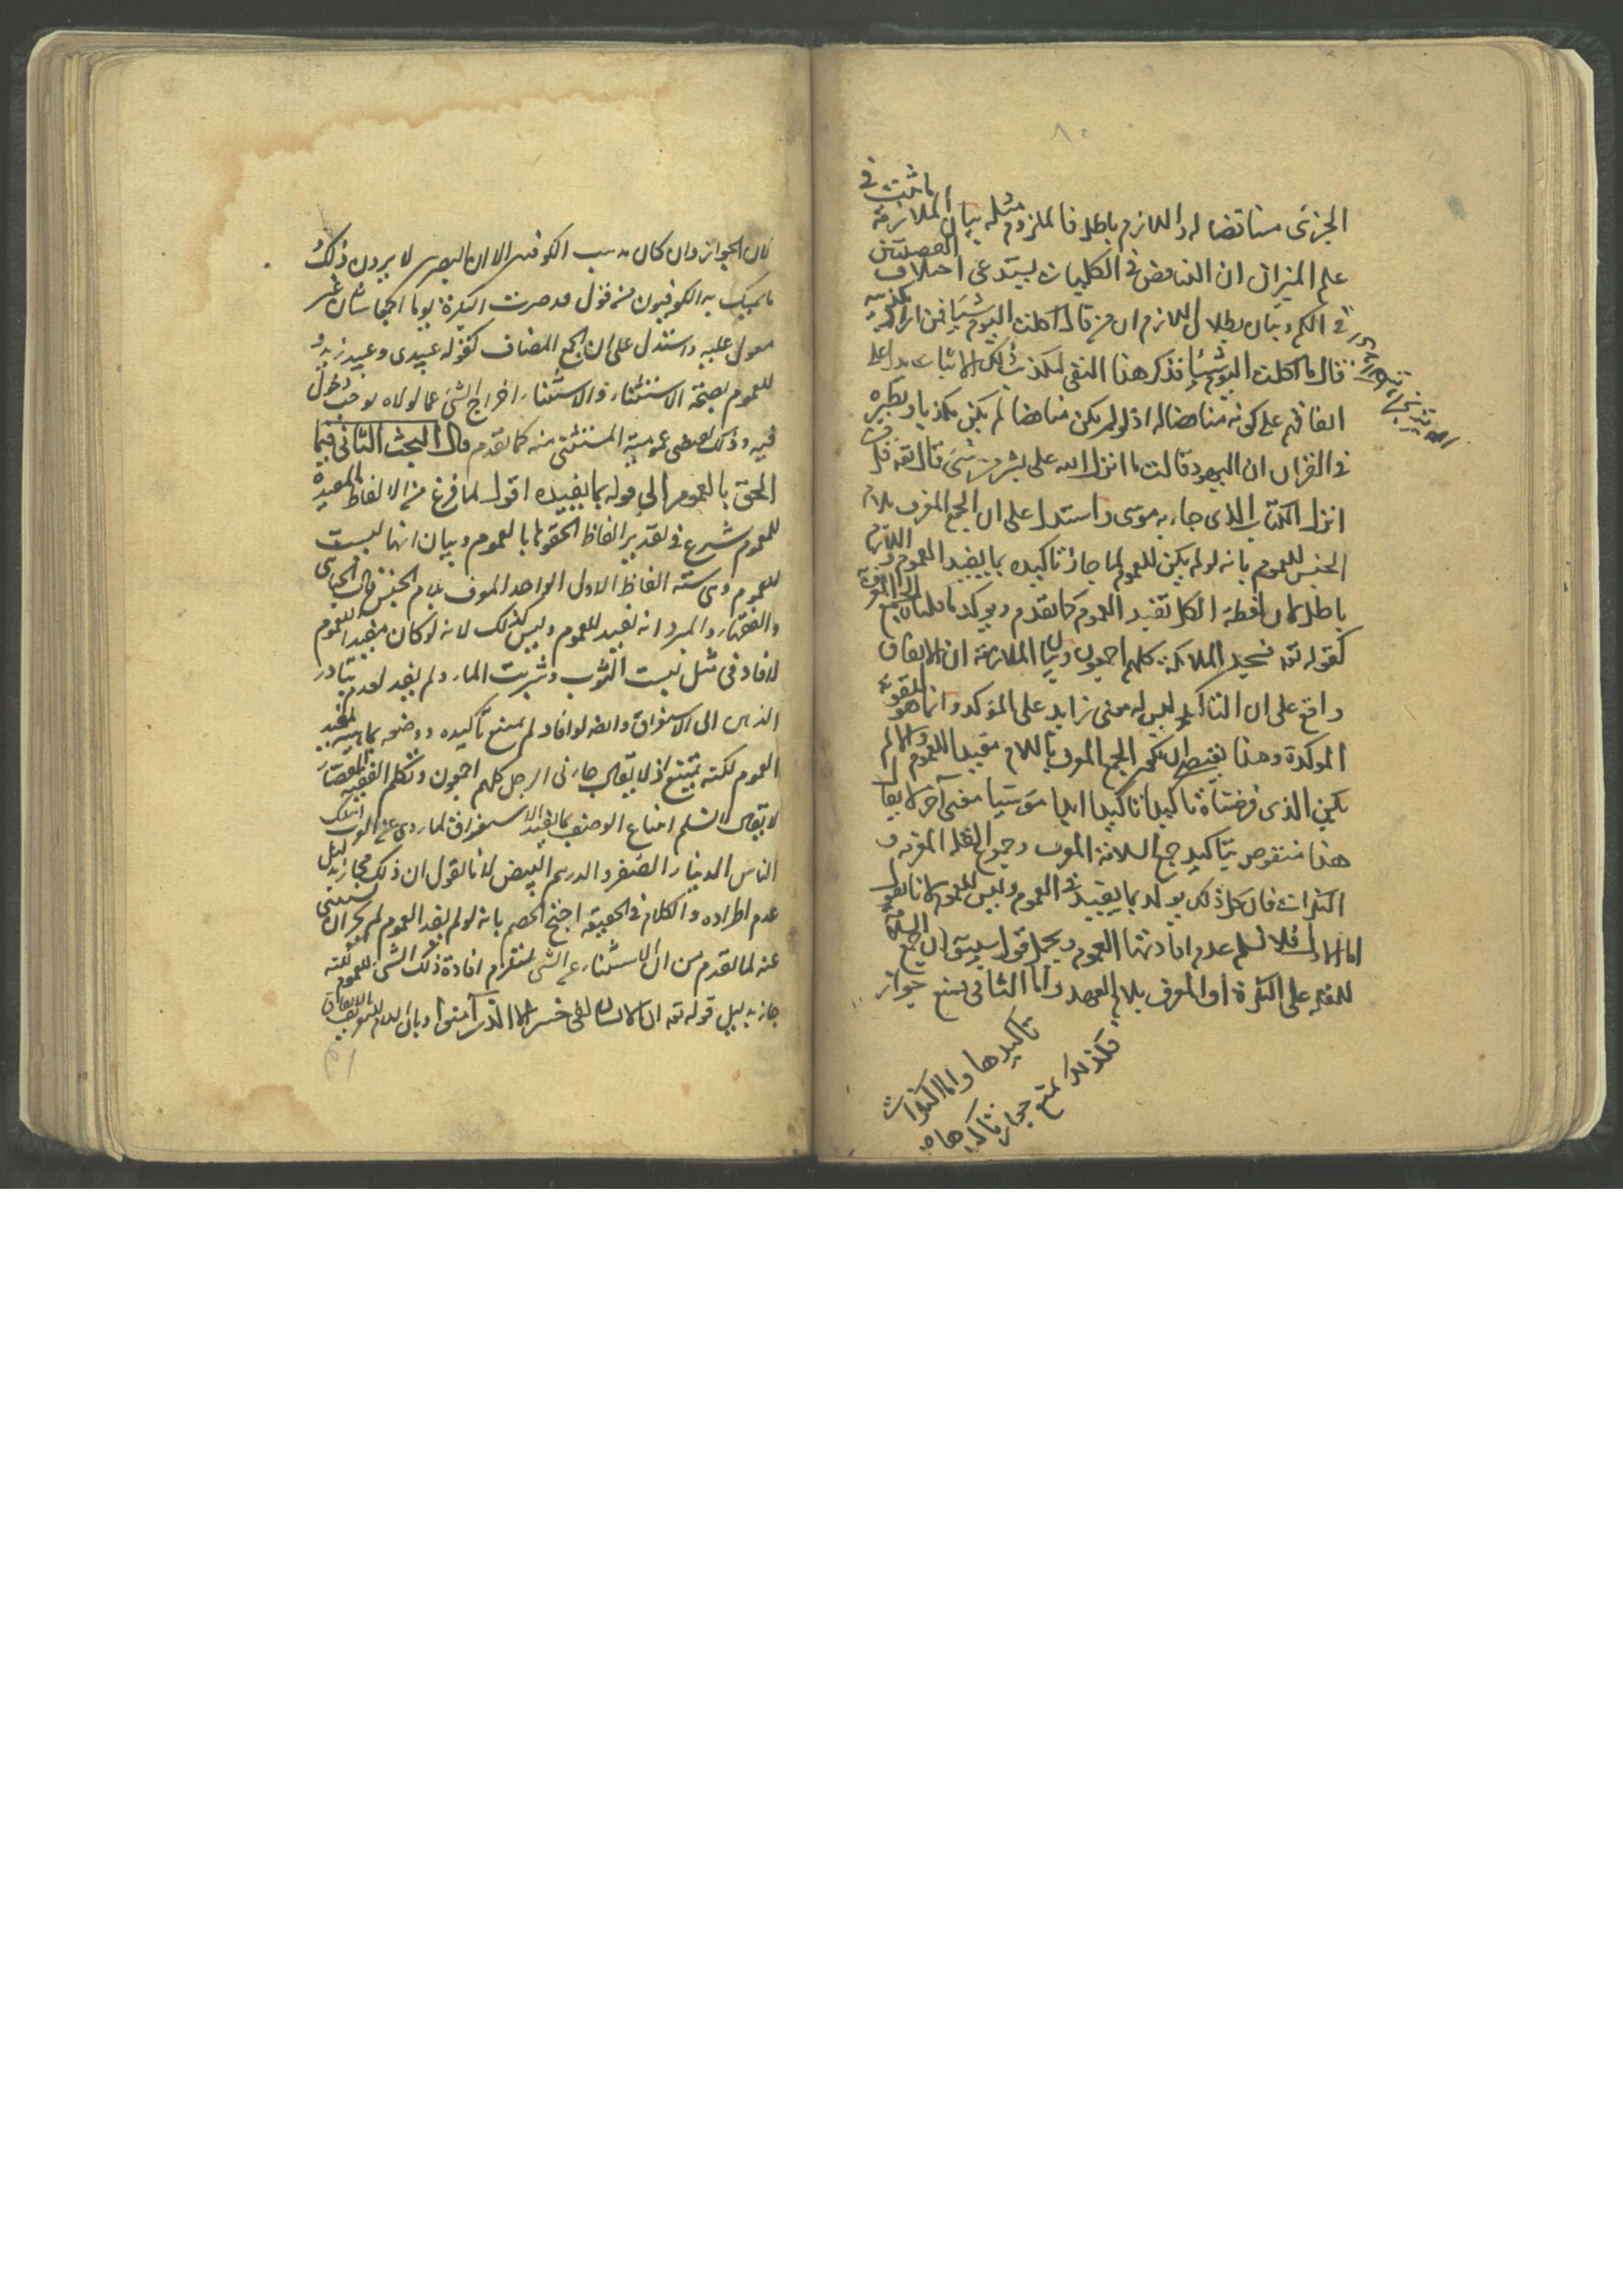 الجزئى مناقضا له واللازم باطل فالملزوم مثله بيان الملازمة ما ثبت فى
علم الميزان ان التناقض فى الكليات يستدعى اختلاف القضيتين
فى الكم وبيان بطلان اللازم ان من قال اكلت اليوم شيئا فمن اراد تكذيبه
قال ما اكلت اليوم شيئا فذكر هذا النفى لتكذيب ذلك الاثبات يدل على
اتفاقهم على كونه مناقضا له اذ لو لم يكن مناقضا لم يكن تكذيبا ونظيره
فى القران ان اليهود قالت ما انزل الله على بشر من شئ قال تعه قل من
انزل الكتاب الذى جاء به موسى واستدل على ان الجمع المعرف بلام
الجنس للعموم بانه لو لم يكن للعموم لما جاز تاكيده بما يفيد العموم واللازم
باطل لان لفظة الكل تفيد العموم كما تقدم ويوكد بها الجمع المعرف
كقوله تعه فسجد الملائكة كلهم اجمعون وبيان الملازمة ان الاتفاق
واقع على ان التاكيد ليس له معنى زايد على الموكد وانما هو لتقوية
الموكدة وهذا يقتضى ان يكون الجمع المعرف باللام مفيدا للعموم والا لم
يكن الذى فرضناه تاكيدا تاكيدا بل مؤسسا معنى آخر لا يقال
هذا منقوض بتاكيد جمع السلامة المعرف وجموع القلة المعرفة و
النكرات فان كل ذلك يوكد بما يفيد العموم وليس للعموم لانا نقول
اما الاول فلا نسلم عدم افادتها العموم ويحمل قول سيبويه ان جمع السلامة
للقلة على النكرة او المعرف بلام العهد واما الثانى فنمنع جواز
تاكيدها واما النكرات
فكذلك نمنع جواز تاكيدها
فان الجواز وان كان مذهب الكوفيين الا ان البصريين لا يرون ذلك
ما تمسك به الكوفيون من قول قد صرت البكرة يوما اجمعا شاذ غير
معول عليه واستدل على ان الجمع المضاف كقوله عبيدى وعبيد زيد
للعموم بصحة الاستثناء والاستثناء اخراج الشئ عما لولاه لوجب دخوله
فيه وذلك يقتضى عمومية المستثنى منه كما تقدم قال البحث الثانى فيما
الحق بالعموم الى قوله بما يفيده اقول لما فرغ من الالفاظ المفيدة
للعموم شرع فى تقدير الفاظ الحقوها بالعموم وبيان انها ليست
للعموم وهى ستة الفاظ الاول الواحد المعرف بلام الجنس قال الجبائى
والفقهاء والمبرد انه يفيد العموم وليس كذلك لانه لو كان مفيدا للعموم
لافاد فى مثل لبست الثوب وشربت الماء ولم يفيد لعدم تبادر
الذهن الى الاستغراق وايضه لو افاد لم يمتنع تاكيده ووصفه بما
العموم لكنه يمتنع اذ لا يقال جاءنى الرجل كلهم اجمعون وتكلم الفقيه
لا يقال لا نسلم امتناع الوصف بما يفيد الاستغراق لما روى عن العرب اهلك
الناس الدينار الصفر والدرهم البيض لانا نقول ان ذلك مجاز بدليل
عدم اطراده والكلام فى الحقيقة احتج الخصم بانه لو لم يفد العموم لم يجز ان يستثنى
عنه لما تقدم من ان الاستثناء عن الشئ يستلزم افادة ذلك الشئ للعموم لكنه
جاز بدليل قوله تعه ان الانسان لفى خسر الا الذين آمنوا وبان اللام للتعريف بالاتفاق